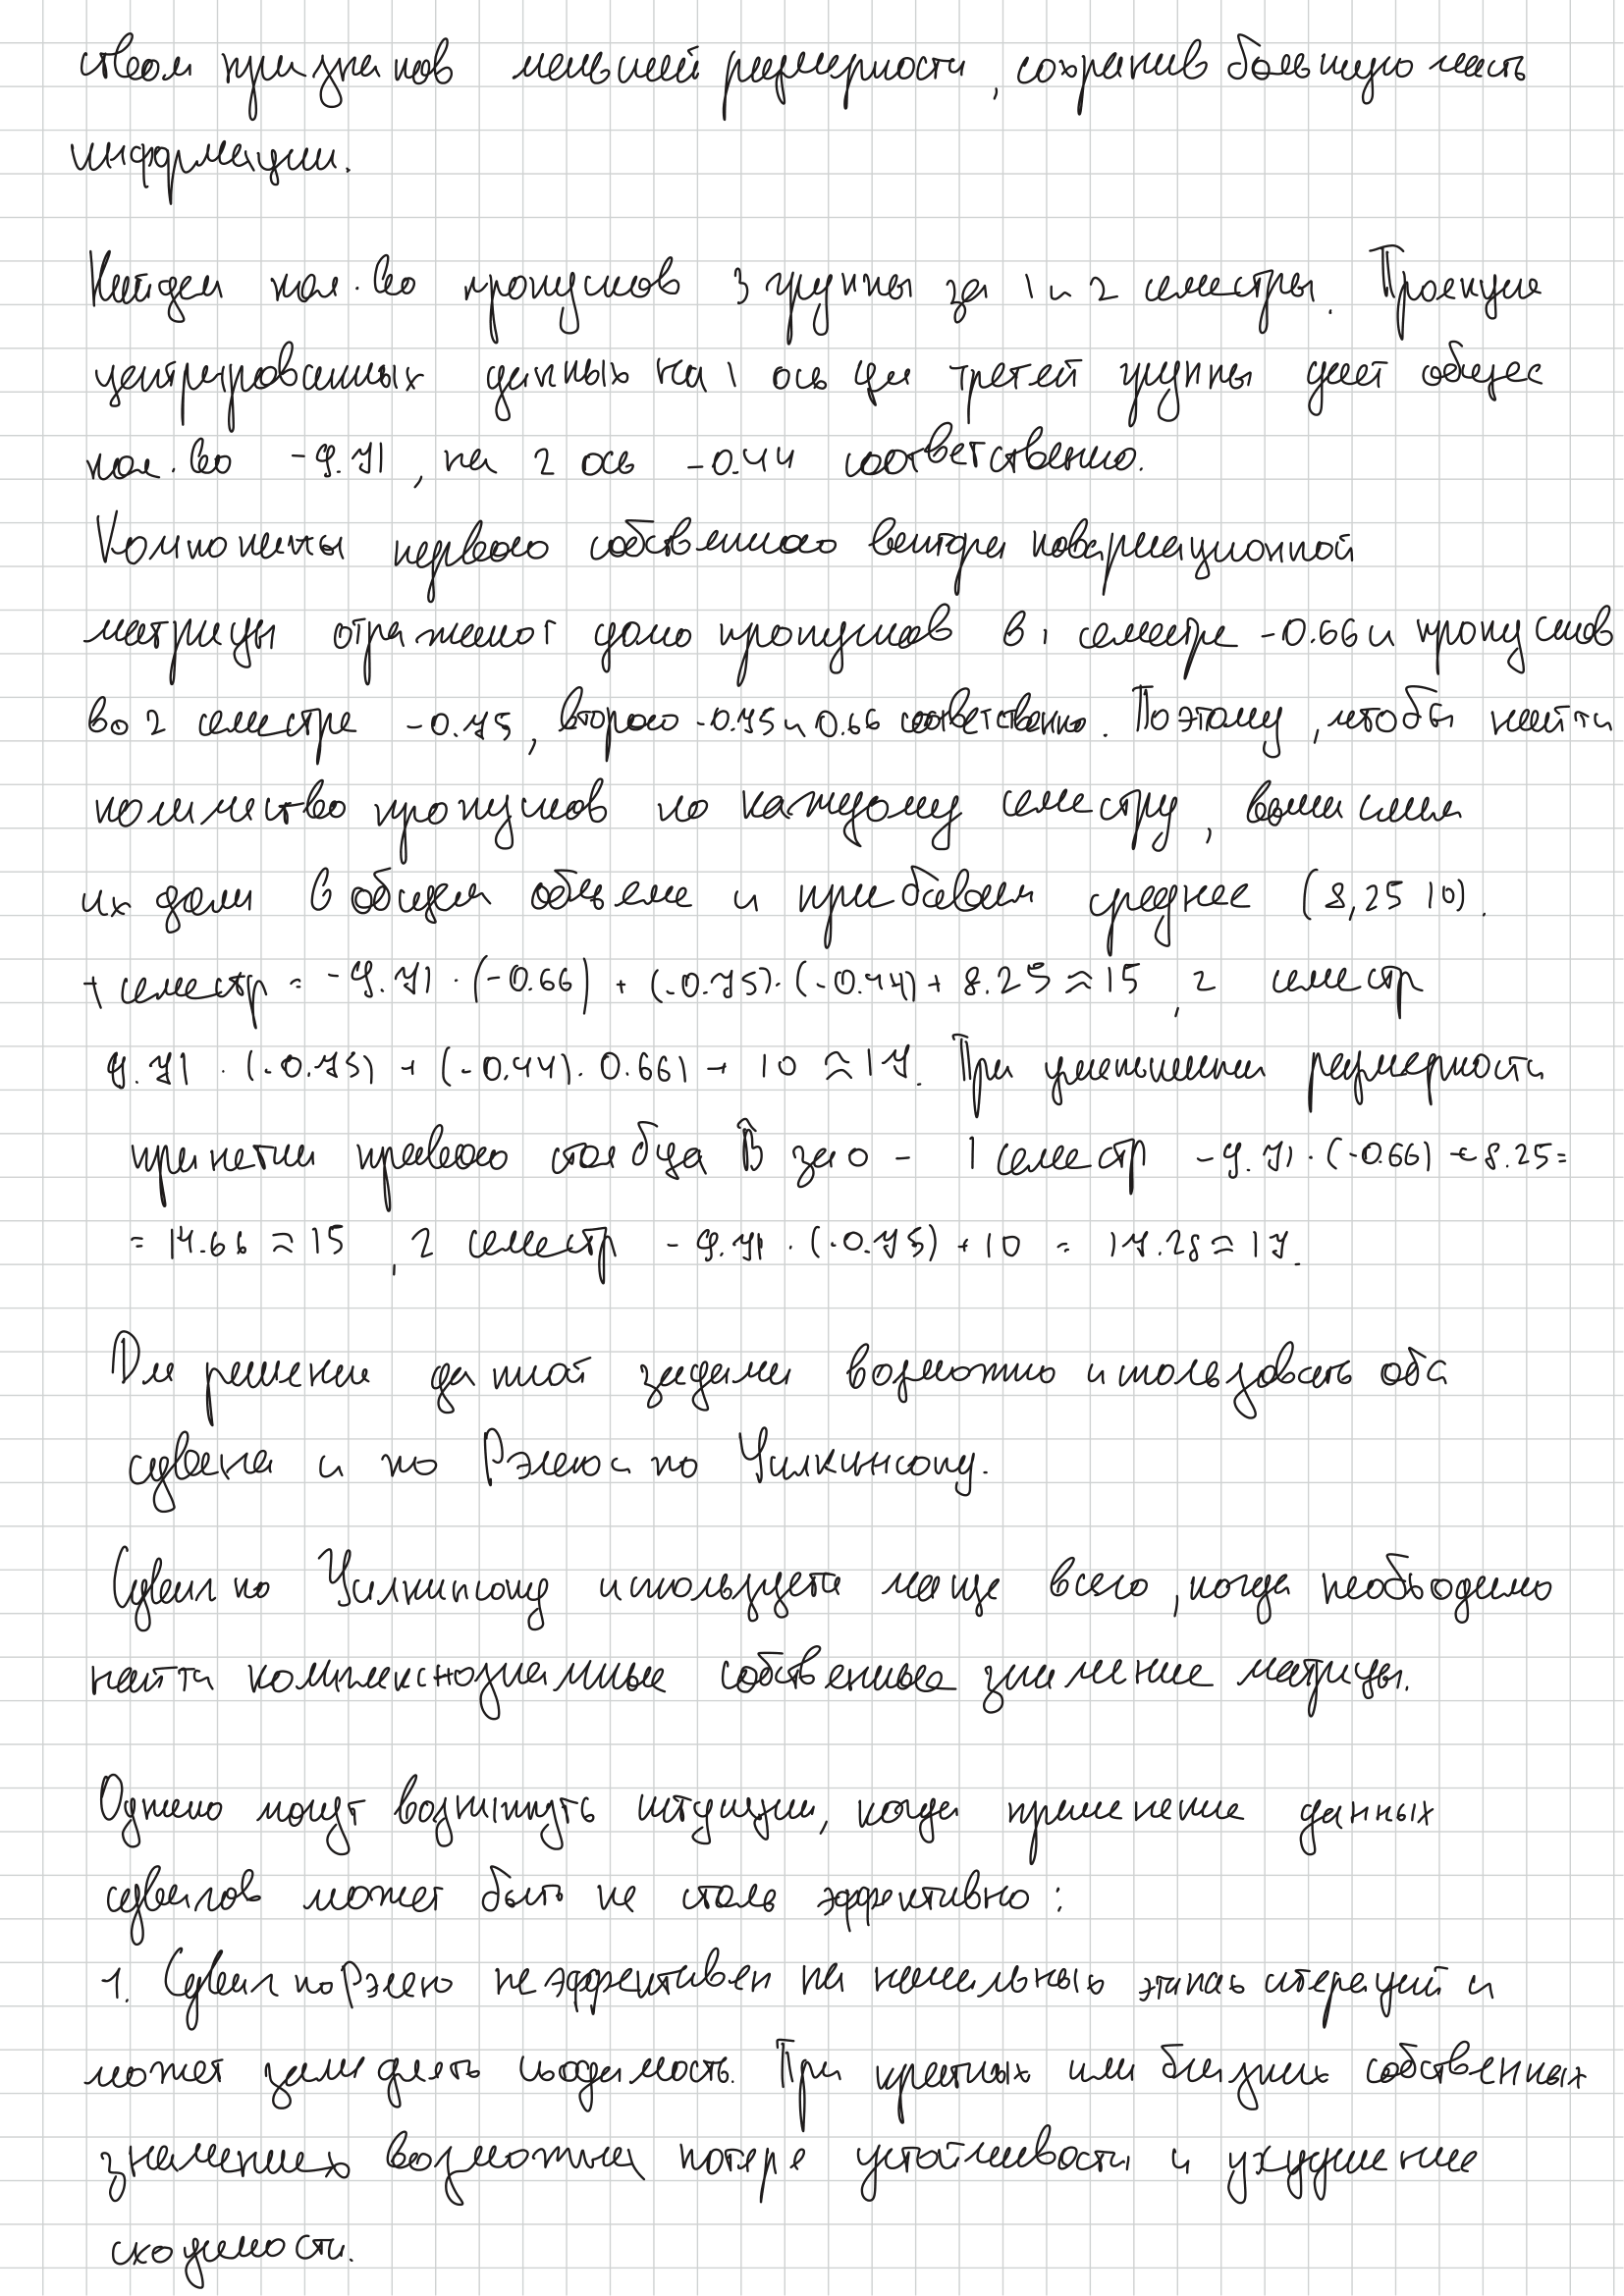 ством признаков меньшей размерности, сохранив большую часть
информации.
Найдем кол-во пропусков 3 группы за 1 и 2 семестры. Проекция
центрированных данных на 1 ось для третей группы дает общее
кол-во -9.71, на 2 ось -0.44 соответственно.
Компоненты первого собственного вектора ковариационной
матрицы отражают долю пропусков в 1 семестре -0.66 и пропусков
во 2 семестре -0.75, второго -0.75 и 0.66 соответственно. Поэтому, чтобы найти
количество пропусков по каждому семестру, вычислим
их доли в общем объеме и прибавим среднее (8,25 10).
1 семестр = -9.71 · (-0.66) + (-0.75) · (-0.44) + 8.25 ≈ 15, 2 семестр
9.71 · (-0.75) + (-0.44) · 0.66) + 10 ≈ 17. При уменьшении размерности
принятии правого столбца B̂ за 0 - 1 семестр -9.71 · (-0.66) + 8.25 =
= 14.66 ≈ 15, 2 семестр - 9.71 · (-0.75) + 10 = 17.28 ≈ 17.
Для решения данной задачи возможно использовать оба
сдвига и по Рэлею и по Уилкинсону.
Сдвиг по Уилкинсону используется чаще всего, когда необходимо
найти комплекснозначные собственные значение матрицы.
Однако могут возникнуть ситуации, когда применение данных
сдвигов может быть не столь эффективно:
1. Сдвиг по Рэлею не эффективен на начальных этапах итераций и
может замедлять сходимость. При кратных или близких собственных
значениях возможна потеря устойчивости и ухудшение
сходимости.